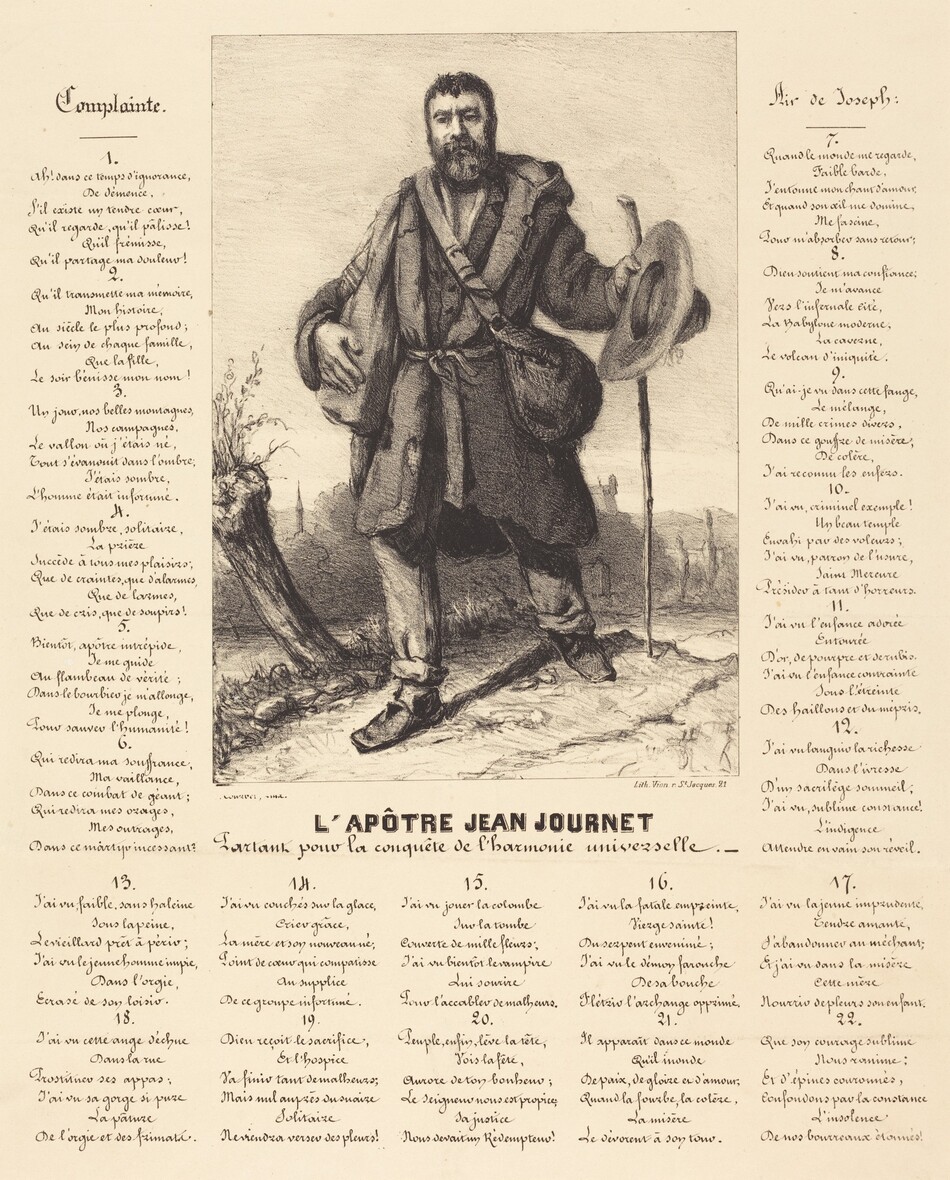 Complainte.
1.
Ah! dans ce temps d'ignorance,
De démence,
S'il existe un tendre cœur,
Qu'il regarde, qu'il pâlisse!
Qu'il frémisse,
Qu'il partage ma douleur!
2.
Qu'il transmette ma mémoire,
Mon histoire,
Au siècle le plus profond;
Au sein de chaque famille,
Que la fille,
Le soir bénisse mon nom!
3.
Un jour, nos belles montagnes,
Nos campagnes,
Le vallon où j'étais né,
Tout s'évanouit dans l'ombre;
J'étais sombre,
L'homme était infortuné.
4.
J'étais sombre, solitaire,
La prière
Succède à tous mes plaisirs;
Que de craintes, que d'alarmes,
Que de larmes,
Que de cris, que de soupirs!
5.
Bientôt, apôtre intrépide,
Je me guide
Au flambeau de vérité;
Dans le bourbier je m'allonge,
Je me plonge,
Pour sauver l'humanité!
6.
Qui redira ma souffrance,
Ma vaillance,
Dans ce combat de géant;
Qui redira mes orages,
Mes outrages,
Dans ce martyr incessant?
Air de Joseph:
7.
Quand le monde me regarde,
Faible barde,
J'entonne mon chant d'amour,
Et quand son œil me domine,
Me fascine,
Pour m'absorber sans retour;
8.
Dieu soutient ma confiance;
Je m'avance
Vers l'infernale cité,
La Babylone moderne,
La caverne,
Le volcan d'iniquité.
9.
Qu'ai-je vu dans cette fange,
Le mélange,
De mille crimes divers,
Dans ce gouffre de misère,
De colère,
J'ai reconnu les enfers.
10.
J'ai vu, criminel exemple!
Un beau temple
Envahi par des voleurs;
J'ai vu, patron de l'usure,
Saint Mercure
Présider à tant d'horreurs.
11.
J'ai vu l'enfance adorée
Entourée
D'or, de pourpre et de rubis.
J'ai vu l'enfance contrainte
Sous l'étreinte
Des haillons et du mépris.
12.
J'ai vu languir la richesse
Dans l'ivresse
D'un sacrilège sommeil;
J'ai vu, sublime constance!
L'indigence
Attendre en vain son réveil.
Lith. Vion r. St Jacques. 21
L'APÔTRE JEAN JOURNET
Partant pour la conquête de l'harmonie universelle.
13.
J'ai vu, faible, sans haleine
Sous la peine,
Le vieillard prêt à périr;
J'ai vu le jeune homme impie,
Dans l'orgie,
Ecrasé de son loisir.
14.
J'ai vu couchés sur la glace,
Crier grâce,
La mère et son nouveau né;
Point de cœur qui compatisse
Au supplice
De ce groupe infortuné.
15.
J'ai vu jouer la colombe
Sur la tombe
Couverte de mille fleurs;
J'ai vu bientôt le vampire
Lui sourire
Pour l'accabler de malheurs.
16.
J'ai vu la fatale empreinte,
Vierge sainte!
Du serpent envenimé;
J'ai vu le démon farouche
De sa bouche
Flétrir l'archange opprimé.
17.
J'ai vu la jeune imprudente,
Tendre amante,
S'abandonner au méchant;
Et j'ai vu dans la misère
Cette mère
Nourrir de pleurs son enfant.
18.
J'ai vu cette ange déchue
Dans la rue
Prostituer ses appas;
J'ai vu sa gorge si pure
La pâture
De l'orgie et des frimats.
19.
Dieu reçoit le sacrifice,
Et l'hospice
Va finir tant de malheurs;
Mais nul auprès du suaire
Solitaire
Ne viendra verser des pleurs!
20.
Peuple, enfin, lève ta tête,
Vois la fête,
Aurore de ton bonheur;
Le Seigneur nous est propice,
Sa justice
Nous devait un Rédempteur!
21.
Il apparaît dans ce monde
Qu'il inonde
De paix, de gloire et d'amour,
Quand la fourbe, la colère,
La misère
Le dévorent à son tour.
22.
Que son courage sublime
Nous ranime;
Et d'épines couronnés,
Confondons par la constance
L'insolence
De nos bourreaux étonnés!